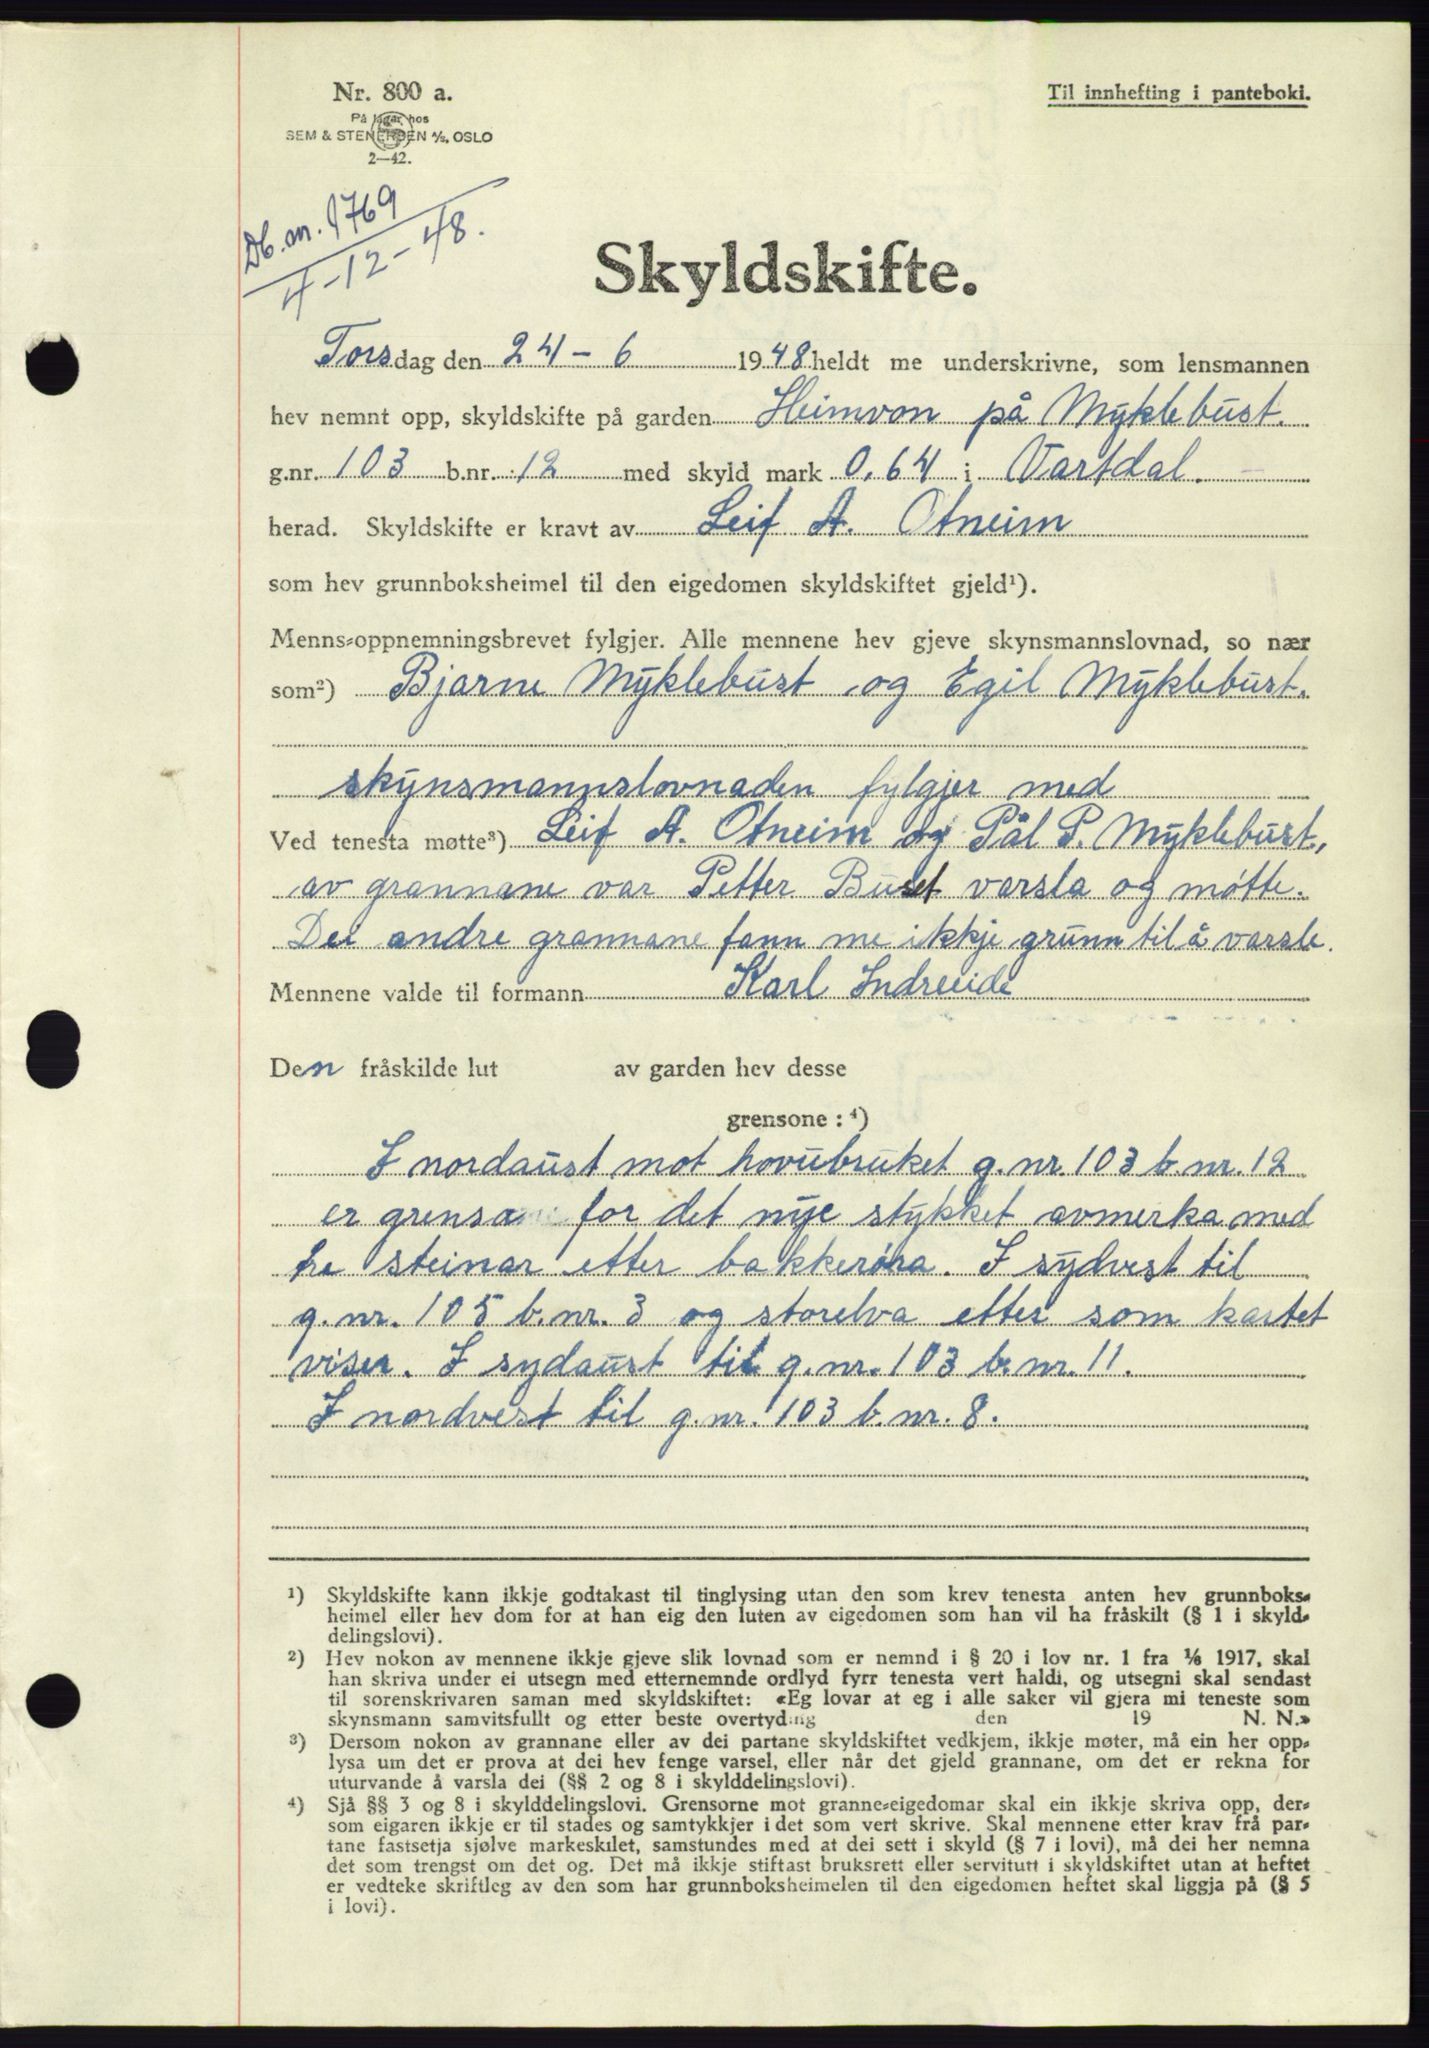 Nr. 800 a.
Til innhefting i panteboki.
På lager hos
SEM & STENERSEN A/S, OSLO
2—42.
Db. nr. 1769
4-12-48.
Skyldskifte.
Torsdag den 24-6 1948 heldt me underskrivne, som lensmannen
hev nemnt opp, skyldskifte på garden Heimvon på Myklebust.
g.nr. 103 b.nr. 12 med skyld mark 0,64 i Vartdal.
herad. Skyldskifte er kravt av Leif A. Otneim
som hev grunnboksheimel til den eigedomen skyldskiftet gjeld¹).
Menns-oppnemningsbrevet fylgjer. Alle mennene hev gjeve skynsmannslovnad, so nær
som²) Bjarne Myklebust og Egil Myklebust.
skynsmannslovnaden fylgjer med
Ved tenesta møtte³) Leif A. Otneim og Pål P. Myklebust,
av grannane var Petter Buset varsla og møtte.
Dei andre grannane fann me ikkje grunn til å varsle.
Mennene valde til formann Karl Indreeide
Den fråskilde lut av garden hev desse
grensone: ⁴)
I nordaust mot hovubruket g.nr. 103 b.nr. 12
er grensa for det nye stykket avmerka med
tre steinar etter bakkerøra. I sydvest til
g.nr. 105 b.nr. 3 og storelva etter som kartet
viser. I sydaust til g.nr. 103 b.nr. 11.
I nordvest til g.nr. 103 b.nr. 8.
¹) Skyldskifte kann ikkje godtakast til tinglysing utan den som krev tenesta anten hev grunnboks-
heimel eller hev dom for at han eig den luten av eigedomen som han vil ha fråskilt (§ 1 i skyld-
delingslovi).
²) Hev nokon av mennene ikkje gjeve slik lovnad som er nemnd i § 20 i lov nr. 1 fra 1/6 1917, skal
han skriva under ei utsegn med etternemnde ordlyd fyrr tenesta vert haldi, og utsegni skal sendast
til sorenskrivaren saman med skyldskiftet: «Eg lovar at eg i alle saker vil gjera mi teneste som
skynsmann samvitsfullt og etter beste overtyding den 19 N. N.»
³) Dersom nokon av grannane eller av dei partane skyldskiftet vedkjem, ikkje møter, må ein her opp-
lysa um det er prova at dei hev fenge varsel, eller når det gjeld grannane, om det er rekna for
uturvande å varsla dei (§§ 2 og 8 i skylddelingslovi).
⁴) Sjå §§ 3 og 8 i skylddelingslovi. Grensorne mot granne-eigedomar skal ein ikkje skriva opp, der-
som eigaren ikkje er til stades og samtykkjer i det som vert skrive. Skal mennene etter krav frå par-
tane fastsetja sjølve markeskilet, samstundes med at dei sett i skyld (§ 7 i lovi), må dei her nemna
det som trengst om det og. Det må ikkje stiftast bruksrett eller servitutt i skyldskiftet utan at heftet
er vedteke skriftleg av den som har grunnboksheimelen til den eigedomen heftet skal liggja på (§ 5
i lovi).